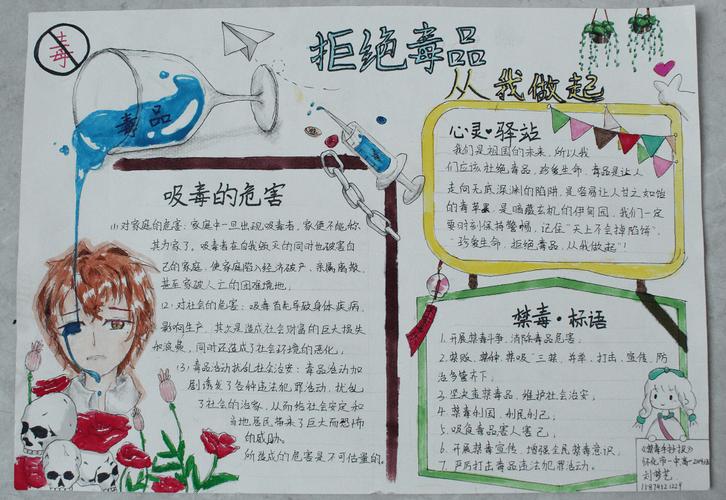 毒
毒品
拒绝毒品
从我做起
心灵♥驿站
我们是祖国的未来，所以我
们应该杜绝毒品，珍爱生命，毒品是让人
走向无底深渊的陷阱，是容易让人甘之如饴
的毒苹果，是暗藏玄机的伊甸园，我们一定
要时刻保持警惕，记住"天上不会掉馅饼"，
"珍爱生命，拒绝毒品，从我做起"！
吸毒的危害
(1)对家庭的危害：家庭中一旦出现吸毒者，家便不能称
其为家了，吸毒者在自我毁灭的同时也破害自
己的家庭，使家庭陷入经济破产，亲属离散，
甚至家破人亡的困难境地；
(2)对社会的危害：吸毒首先导致身体疾病，
影响生产，其次是造成社会财富的巨大损失
和浪费，同时还造成了社会环境的恶化；
(3)毒品活动扰乱社会治安：毒品活动加
剧诱发了各种违法犯罪活动，扰乱
了社会的治安，从而给社会安定和
当地居民带来了巨大而想怖
的威胁。
所造成的危害是不可估量的。
禁毒·标语
1、开展禁毒斗争，消除毒品危害，
2、禁贩、禁种、禁吸"三禁"并举，打击、宣传、防
治多管齐下；
3、坚决查禁毒品，维护社会治安；
4、禁毒利国，利民利己；
5、吸食毒品害人害己；
6、开展禁毒宣传，增强全民禁毒意识；
7、严厉打击毒品违法犯罪活动。
《禁毒手抄报》
怀化市一中高一
刘梦艺